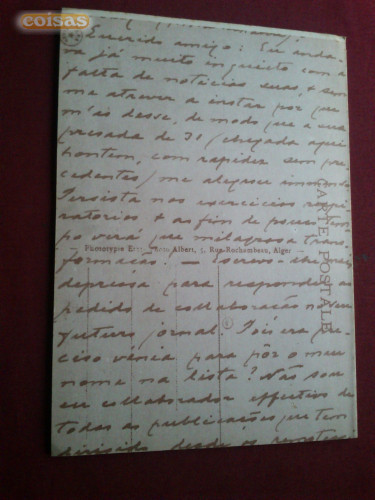 coisas
Querido amigo: Eu anda-
va já muito inquieto com a
falta de noticias suas, e sem
me atrever a instar por que
m'as desse, de modo que a sua
presada de 31 (chegada aqui
hontem, com rapidez sem pre-
cedentes) me alegrou immenso.
Persista nos exercicios respi-
ratorios e ao fim de pouco tem-
po verá que milagrosa trans-
formação! — Escrevo-lhe mais
depressa para responder ao
pedido de collaboração no seu
futuro jornal. Pois era pre-
ciso vénia para pôr o meu
nome na lista? Não sou
eu collaborador effectivo de
todas as publicações que tem
dirigido, desde os
Phototypie Albert, 5, Rue Rochambeau, Alger
CARTE POSTALE